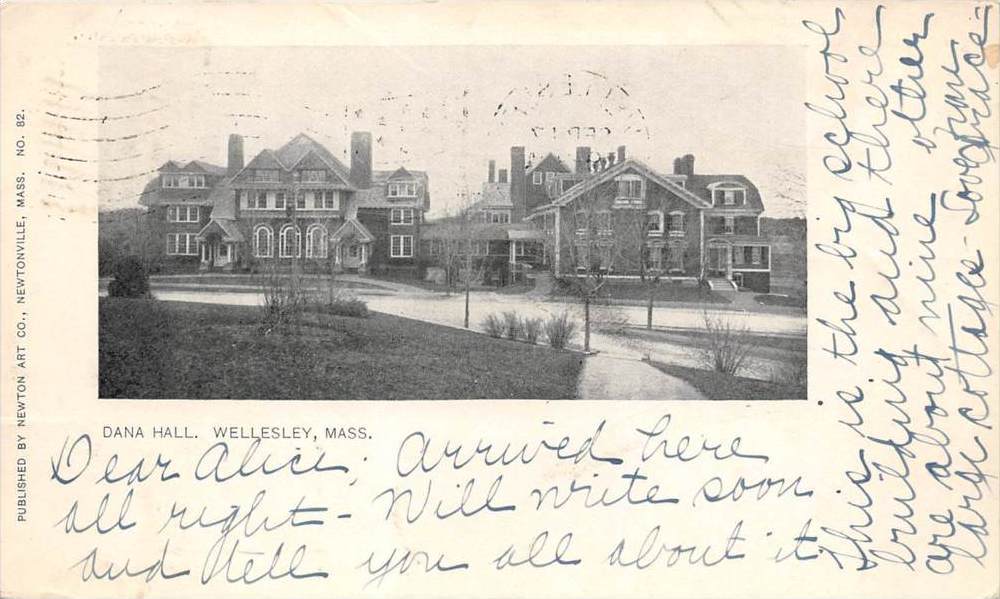 DANA HALL. WELLESLEY, MASS.
Dear Alice; Arrived here
all right - Will write soon
and tell you all about it.
This is the big school
building and there
are about nine other
large cottage - Love
PUBLISHED BY NEWTON ART CO., NEWTONVILLE, MASS. NO. 82.